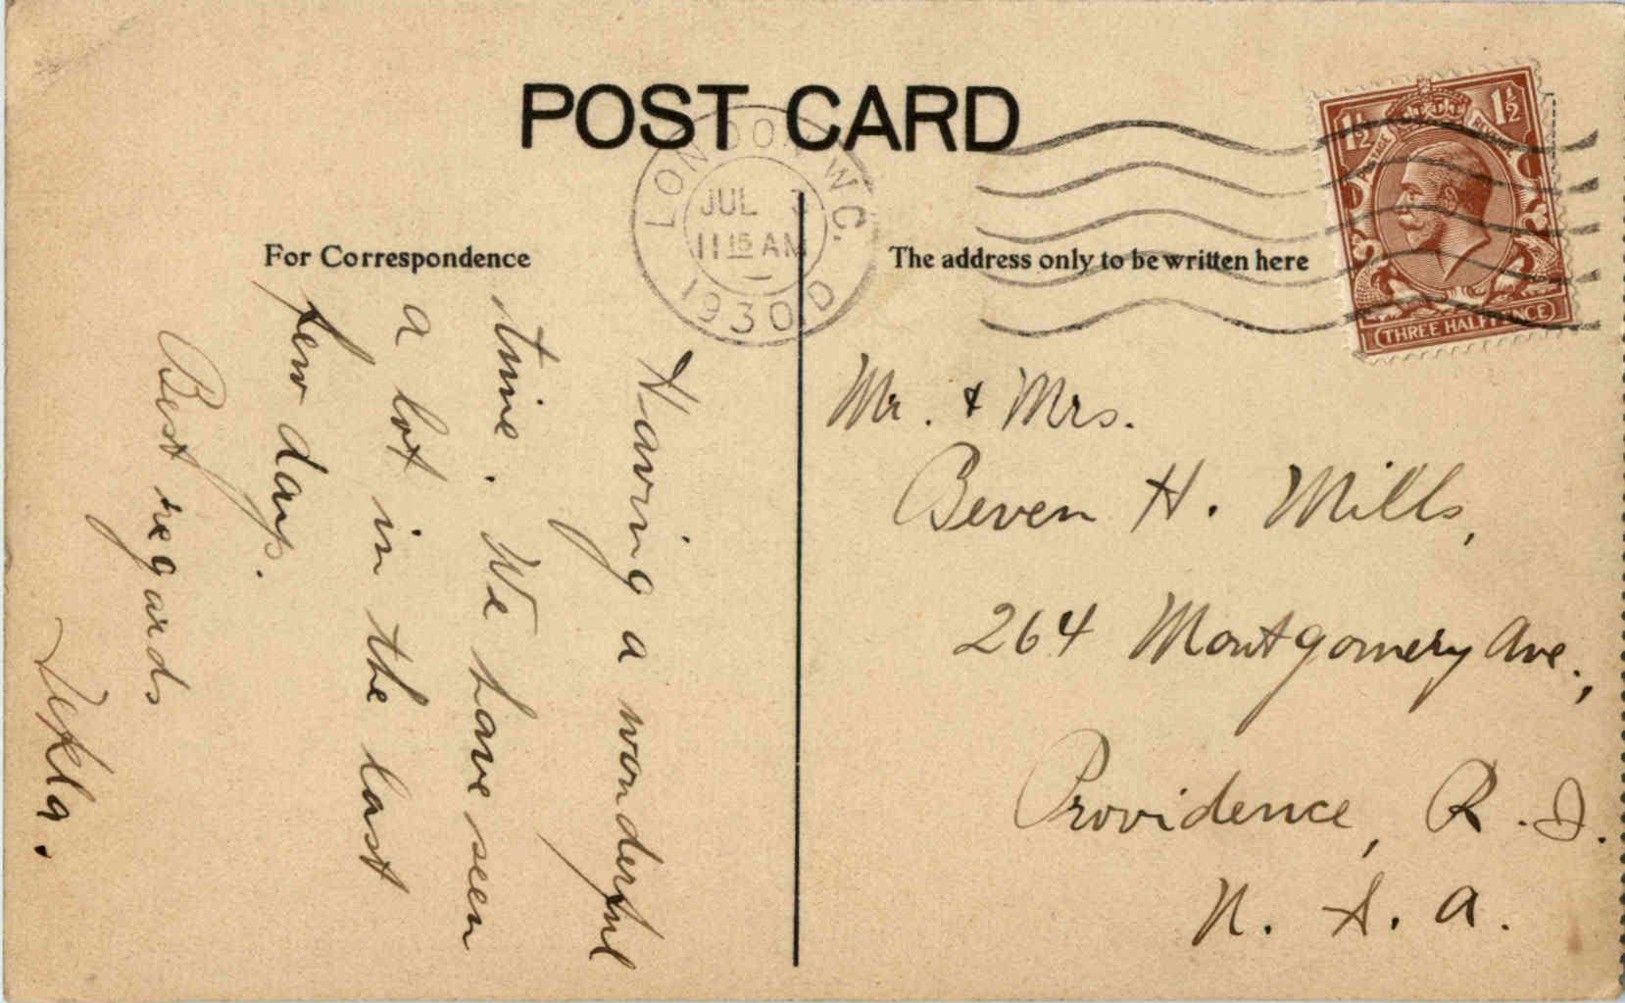 POST CARD
LONDON W.C.
JUL 3
11 15 AM
1930
D
1½ 1½
POSTAGE REVENUE
THREE HALFPENCE
For Correspondence
The address only to be written here
Having a wonderful
time. We have seen
a lot in the last
few days.
Best regards
Tekla.
Mr. & Mrs.
Beven H. Mills,
264 Montgomery Ave.,
Providence, R.I.
U.S.A.